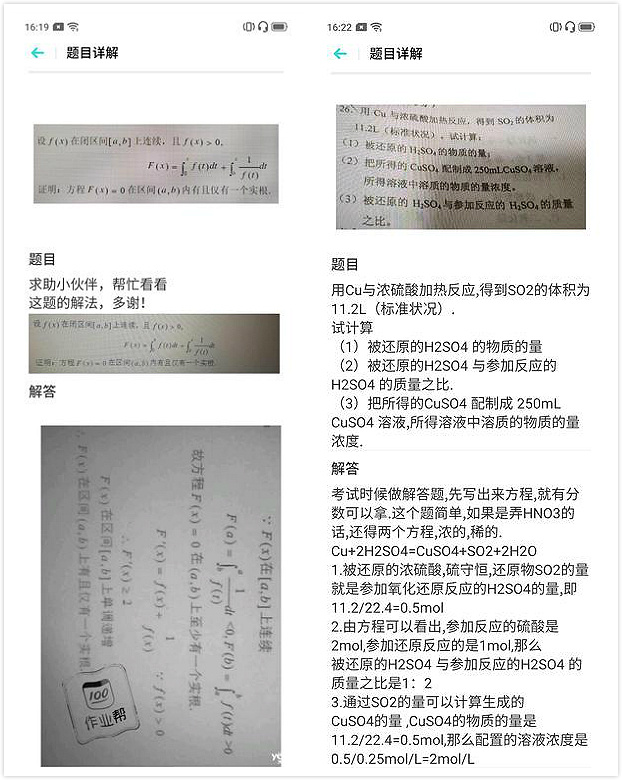 16:19
题目详解
设f(x)在闭区间[a,b]上连续，且f(x)>0,
F(x)=∫f(t)dt+∫1/f(t)dt
证明：方程F(x)=0在区间(a,b)内有且仅有一个实根.
题目
求助小伙伴，帮忙看看
这题的解法，多谢！
设f(x)在闭区间[a,b]上连续，且f(x)>0,
F(x)=∫f(t)dt+∫1/f(t)dt
证明：方程F(x)=0在区间(a,b)内有且仅有一个实根.
解答
∵F(x)在[a,b]上连续
F(a)=∫1/f(t)dt<0,F(b)=∫f(t)dt>0
故方程F(x)=0在(a,b)上至少有一个实根.
F'(x)=f(x)+1/f(x) ∵f(x)>0
∴F'(x)≥2
F(x)在区间[a,b]上单调递增
∴F(x)在区间(a,b)上有且仅有一个实根
100
作业帮
16:22
题目详解
26.用Cu与浓硫酸加热反应，得到SO₂的体积为
11.2L（标准状况）。试计算：
（1）被还原的H₂SO₄的物质的量；
（2）把所得的CuSO₄配制成250mLCuSO₄溶液，
所得溶液中溶质的物质的量浓度。
（3）被还原的H₂SO₄与参加反应的H₂SO₄的质量
之比。
题目
用Cu与浓硫酸加热反应,得到SO2的体积为
11.2L（标准状况）.
试计算
（1）被还原的H2SO4 的物质的量
（2）被还原的H2SO4 与参加反应的
H2SO4 的质量之比.
（3）把所得的CuSO4 配制成 250mL
CuSO4 溶液,所得溶液中溶质的物质的量
浓度.
解答
考试时候做解答题,先写出来方程,就有分
数可以拿.这个题简单,如果是弄HNO3的
话,还得两个方程,浓的,稀的.
Cu+2H2SO4=CuSO4+SO2+2H2O
1.被还原的浓硫酸,硫守恒,还原物SO2的量
就是参加氧化还原反应的H2SO4的量,即
11.2/22.4=0.5mol
2.由方程可以看出,参加反应的硫酸是
2mol,参加还原反应的是1mol,那么
被还原的H2SO4 与参加反应的H2SO4 的
质量之比是1：2
3.通过SO2的量可以计算生成的
CuSO4的量 ,CuSO4的物质的量是
11.2/22.4=0.5mol,那么配置的溶液浓度是
0.5/0.25mol/L=2mol/L